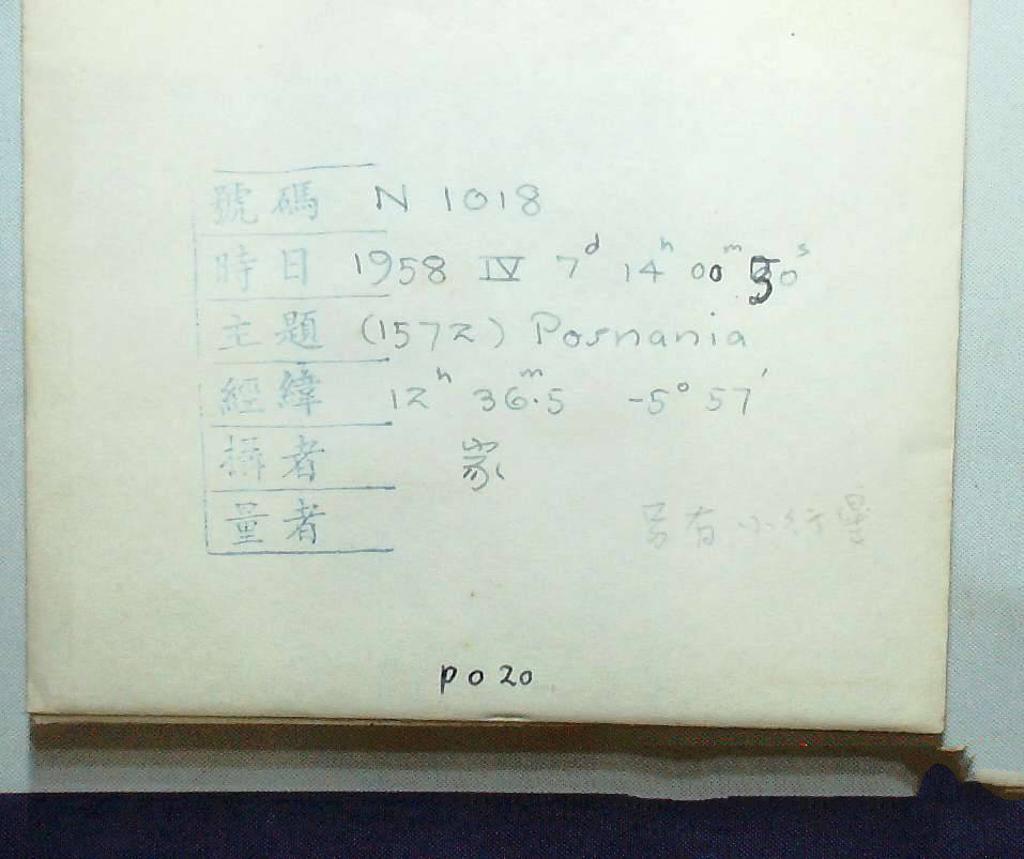 號碼 N 1018
時日 1958 IV 7d 14h 00m 30s
主題 (1572) Posnania
經緯 12h 36m.5 -5° 57'
攝者 家
量者
另有小行星
p020